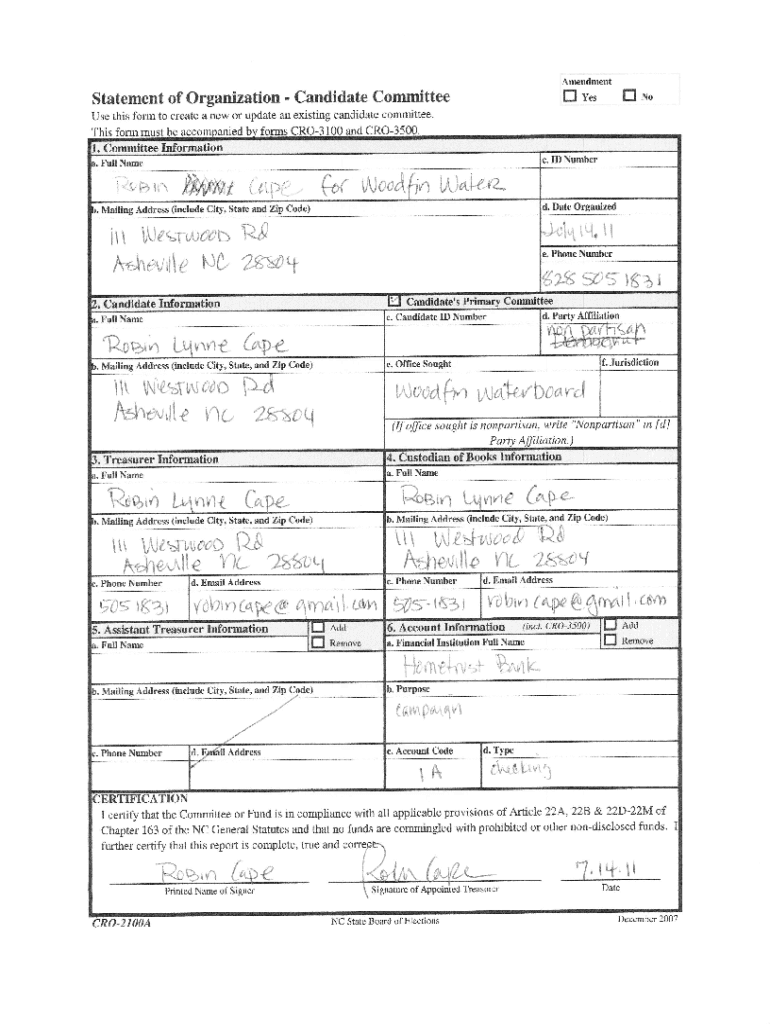 Amendment
Statement of Organization - Candidate Committee
☐ Yes ☐ No
Use this form to create a new or update an existing candidate committee.
This form must be accompanied by forms CRO-3100 and CRO-3500.
1. Committee Information
a. Full Name
c. ID Number
Robin Cape for Woodfin Water
b. Mailing Address (include City, State and Zip Code)
d. Date Organized
111 Westwood Rd
July 14, 11
Asheville NC 28804
e. Phone Number
828 505 1831
2. Candidate Information
Candidate's Primary Committee
a. Full Name
c. Candidate ID Number
d. Party Affiliation
Robin Lynne Cape
non partisan
Democrat
b. Mailing Address (include City, State, and Zip Code)
e. Office Sought
f. Jurisdiction
111 Westwood Rd
Asheville nc 28804
Woodfin Waterboard
(If office sought is nonpartisan, write "Nonpartisan" in [d]
Party Affiliation.)
3. Treasurer Information
4. Custodian of Books Information
a. Full Name
a. Full Name
Robin Lynne Cape
Robin Lynne Cape
b. Mailing Address (include City, State, and Zip Code)
b. Mailing Address (include City, State, and Zip Code)
111 Westwood Rd
Asheville NC 28804
111 Westwood Rd
Asheville NC 28804
c. Phone Number
d. Email Address
c. Phone Number
d. Email Address
505 1831
robincape@gmail.com
505-1831
robincape@gmail.com
5. Assistant Treasurer Information
☐ Add
☐ Remove
6. Account Information (incl. CRO-3500)
☐ Add
☐ Remove
a. Full Name
a. Financial Institution Full Name
Hometrust Bank
b. Mailing Address (include City, State, and Zip Code)
b. Purpose
campaign
c. Phone Number
d. Email Address
c. Account Code
d. Type
1A
checking
CERTIFICATION
I certify that the Committee or Fund is in compliance with all applicable provisions of Article 22A, 22B & 22D-22M of
Chapter 163 of the NC General Statutes and that no funds are commingled with prohibited or other non-disclosed funds. I
further certify that this report is complete, true and correct.
Robin Cape
Robin Cape
7.14.11
Printed Name of Signer
Signature of Appointed Treasurer
Date
CRO-2100A
NC State Board of Elections
December 2007